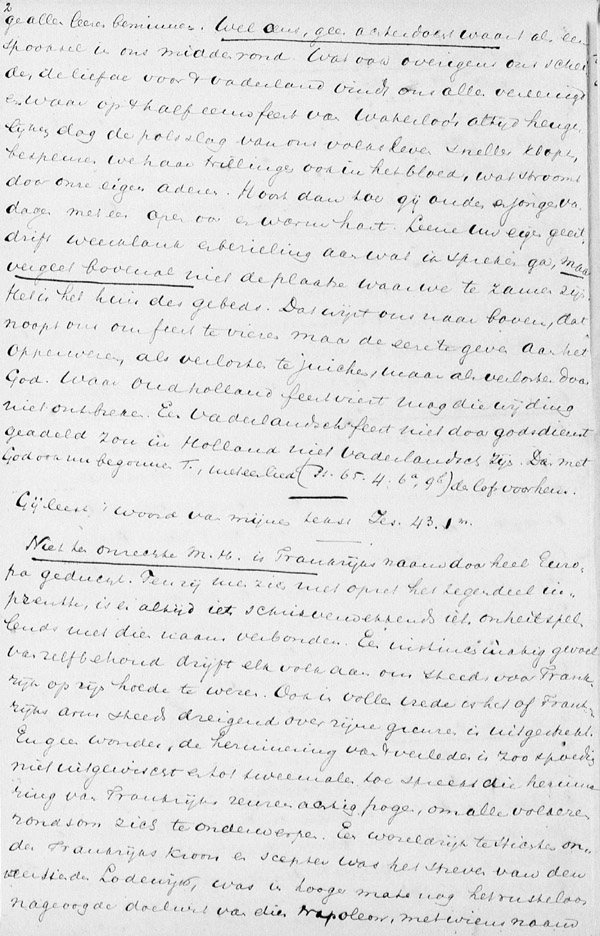 2
gealler leeren beminnen. Wel eens, geen achterdocht waart als een
spooksel in ons midden rond. Wat ook overigens ons schei
de, de liefde voor 't vaderland vindt ons allen vereenigd
en waar op 't halfeeuwfeest van Waterloo's altijd heuge
lijken dag de polsslag van ons volksleven sneller klopt,
bespeuren we haar trillingen ook in het bloed, wat stroomt
door onze eigen aderen. Hoort dan toe gij ouden en jongen van
dagen met een open oor en warm hart. Leene uw eigen geest
drift weerklank en bezieling aan wat ik spreken ga, maar
vergeet bovenal niet de plaats waar we te zamen zijn.
Het is het huis des gebeds. Dat wijst ons naar boven, dat
noopt ons om feest te vieren maar de eere te geven aan het
Opperwezen, als verlosten te juichen, maar als verlosten door
God. Waar oud Holland feest viert mag die wijding
niet ontbreken. Een vaderlandsch feest niet door godsdienst
geadeld zou in Holland niet vaderlandsch zijn. Dan met
God ook nu begonnen T., met een lied (Ps. 65. 4; 6a, 9b) de lof voor hem.
Gij leest 't woord van mijnen tekst Jes. 43. 1m.
Niet ten onrechte M. H. is Frankrijks naam door heel Euro
pa geducht. Tenzij men zich met opzet het tegendeel in-
prentte, is er altijd iets schrikverwekkends iets onheilspel
lends met dien naam verbonden. Een instinctmatig gevoel
van zelfbehoud drijft elk volk aan om steeds voor Frank
rijk op zijn hoede te wezen. Ook in vollen vrede is het of Frank-
rijks arm steeds dreigend over zijne grenzen is uitgestrekt.
En geen wonder, de herinnering van 't verleden is zoo spoedig
niet uitgewischt en tot tweemalen toe spreekt die herinne
ring van Frankrijks reuzenachtig pogen, om alle volkeren
rondsom zich te onderwerpen. Een wereldrijk te stichten on-
der Frankrijks kroon en scepter was het streven van den
veertienden Lodewijk, was in hooge mate nog het rusteloos
nagejoogde doelwit van dien Napoleon, met wiens naam